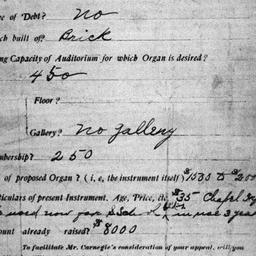 e of Debt? No
ch built of? Brick
ng Capacity of Auditorium for which Organ is desired?
450
Floor?
Gallery? No gallery
mbership? 250
of proposed Organ? (i. e, the instrument itself) $1535
ticulars of present Instrument. Age, Price, etc. $35 Chapel
used now for in use 3 year
ount already raised? $8000
To facilitate Mr. Carnegie's consideration of your appeal, will you